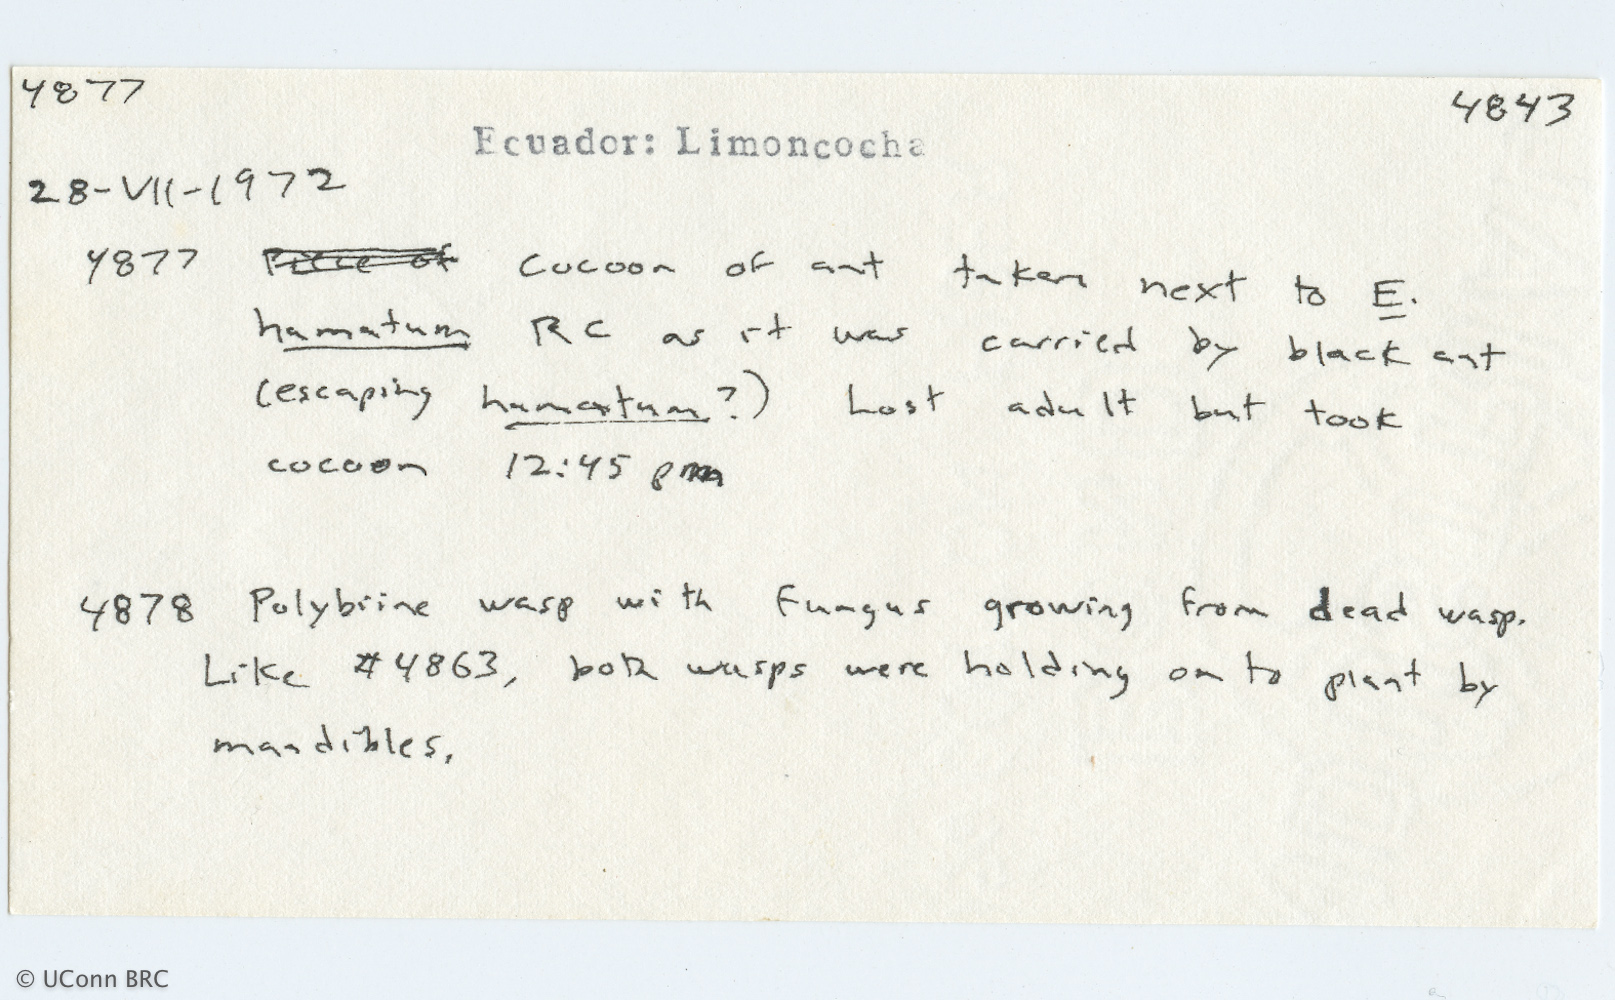 4877
4843
Ecuador: Limoncocha
28-VII-1972
4877 Piece of Cocoon of ant taken next to E.
hamatum RC as it was carried by black ant
(escaping hamatum?) Lost adult but took
cocoon 12:45 pm
4878 Polybiine wasp with fungus growing from dead wasp.
Like #4863, both wasps were holding on to plant by
mandibles.
© UConn BRC